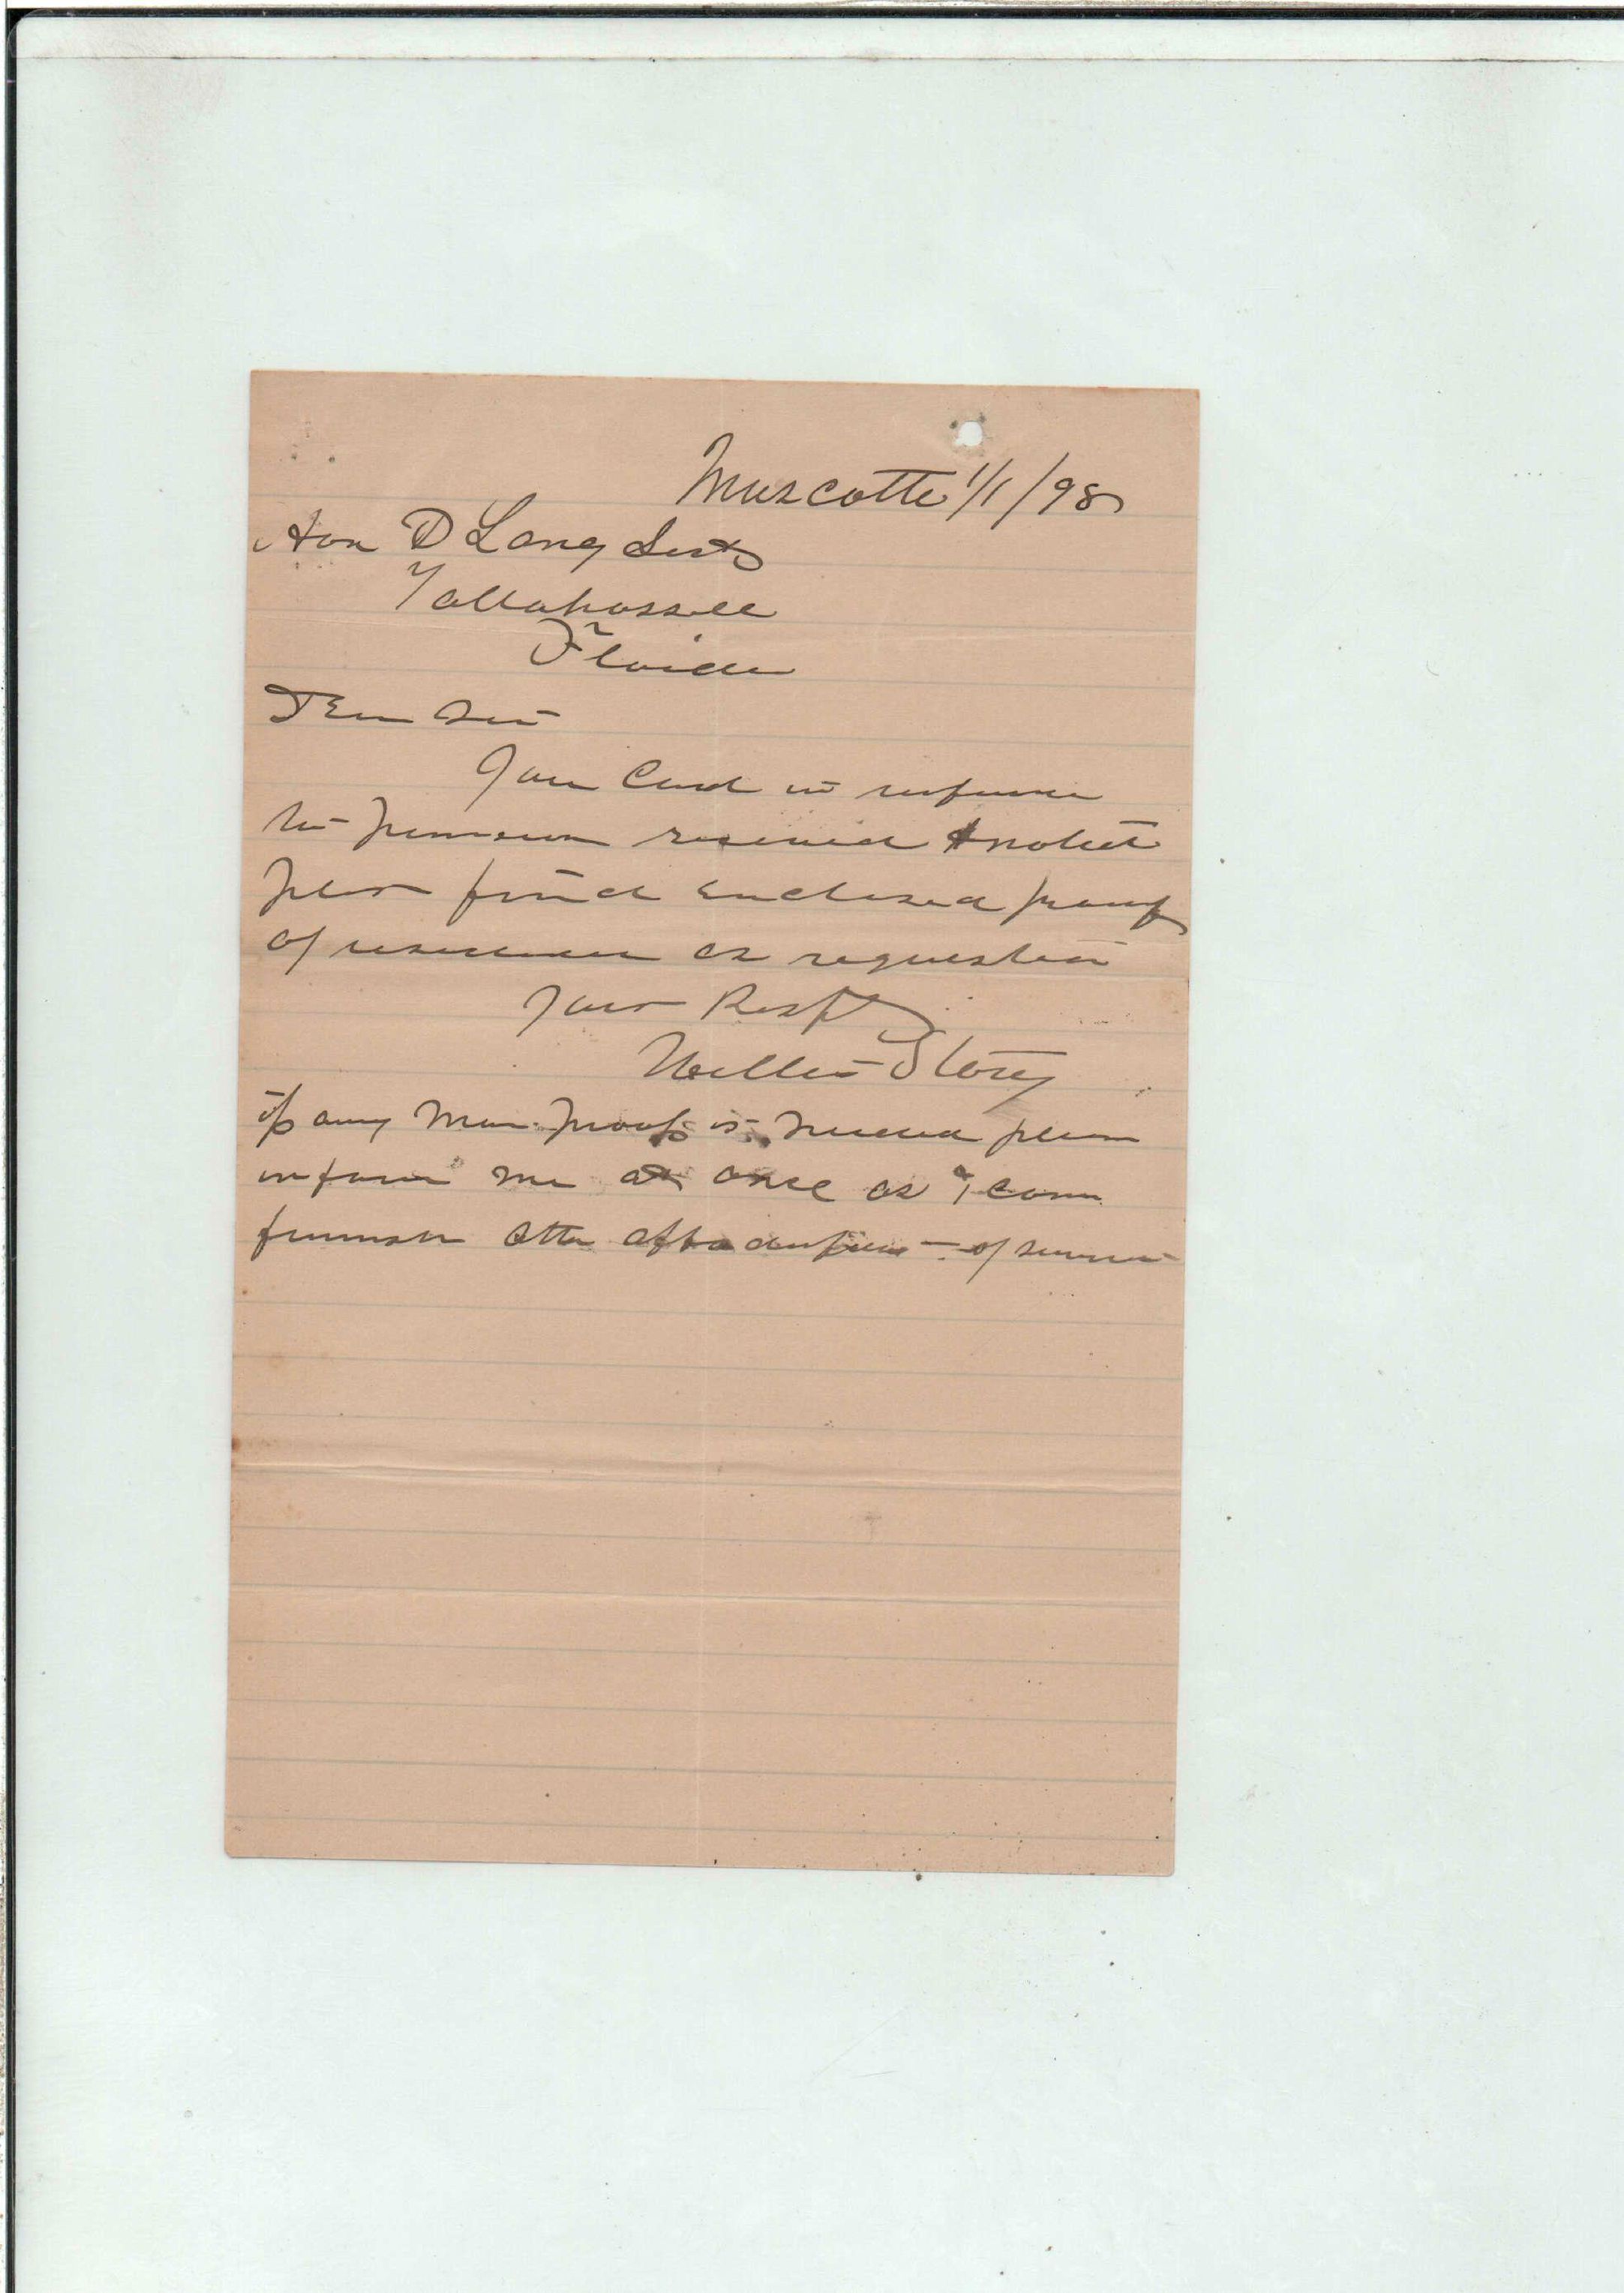 Muscotte 1/1/98
Hon D Lang Secty
Tallahassee
Florida
Dear Sir
Your Card in reference
to pension received & noted
please find enclosed proof
of residence as requested
Yours Respt
Willis Story
if any more proof is needed please
inform me at once as I can
furnish other of service